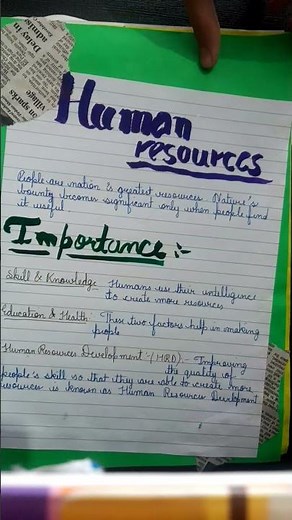 Human
resources
People are nation & greatest resources. Nature's
bounty becomes significant only when people find
it useful
Importance:-
Skill & Knowledge Humans use their intelligence
to create more resources
Education & Health: These two factors help in making
people
Human Resources Development:-(HRD):- Improving
the quality of
people's skill so that they are able to create more
resources is known as Human Resources Development
on sparks
village
Delay in
admiss